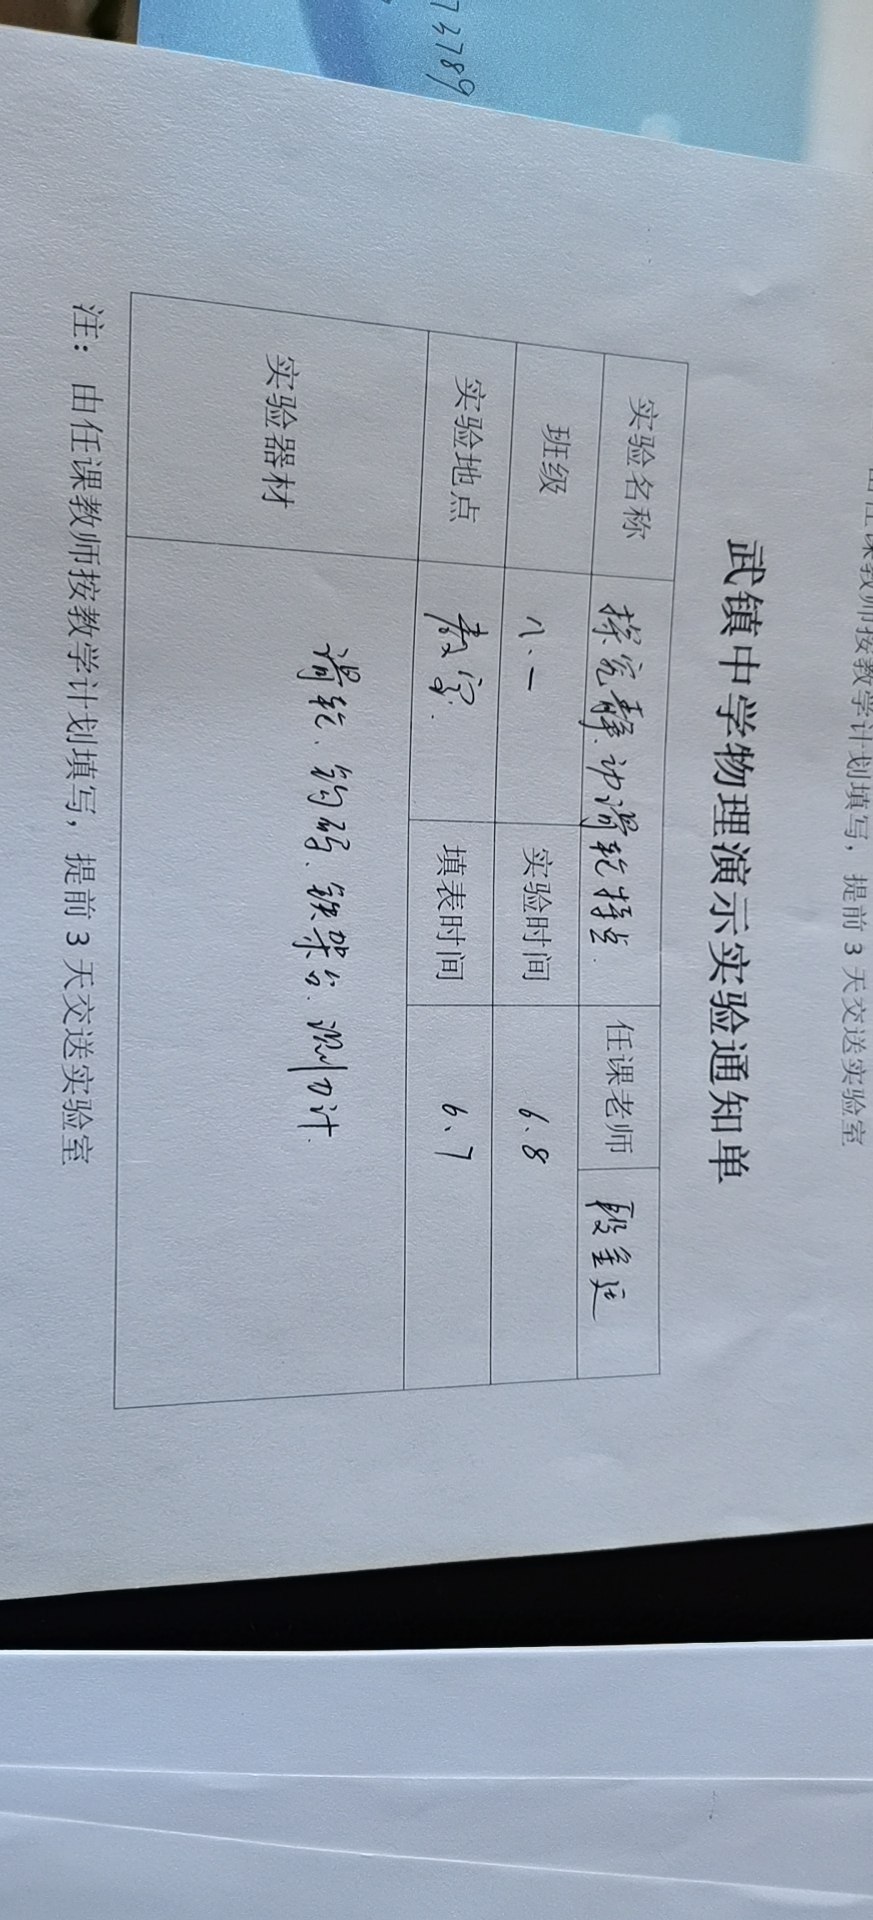 73789
由任课教师按教学计划填写，提前 3 天交送实验室
武镇中学物理演示实验通知单
实验名称 探究静、动滑轮特点. 任课老师 段金廷
班级 八.一 实验时间 6.8
实验地点 教室. 填表时间 6、7
实验器材 滑轮、钩码、铁架台、测力计.
注：由任课教师按教学计划填写，提前 3 天交送实验室